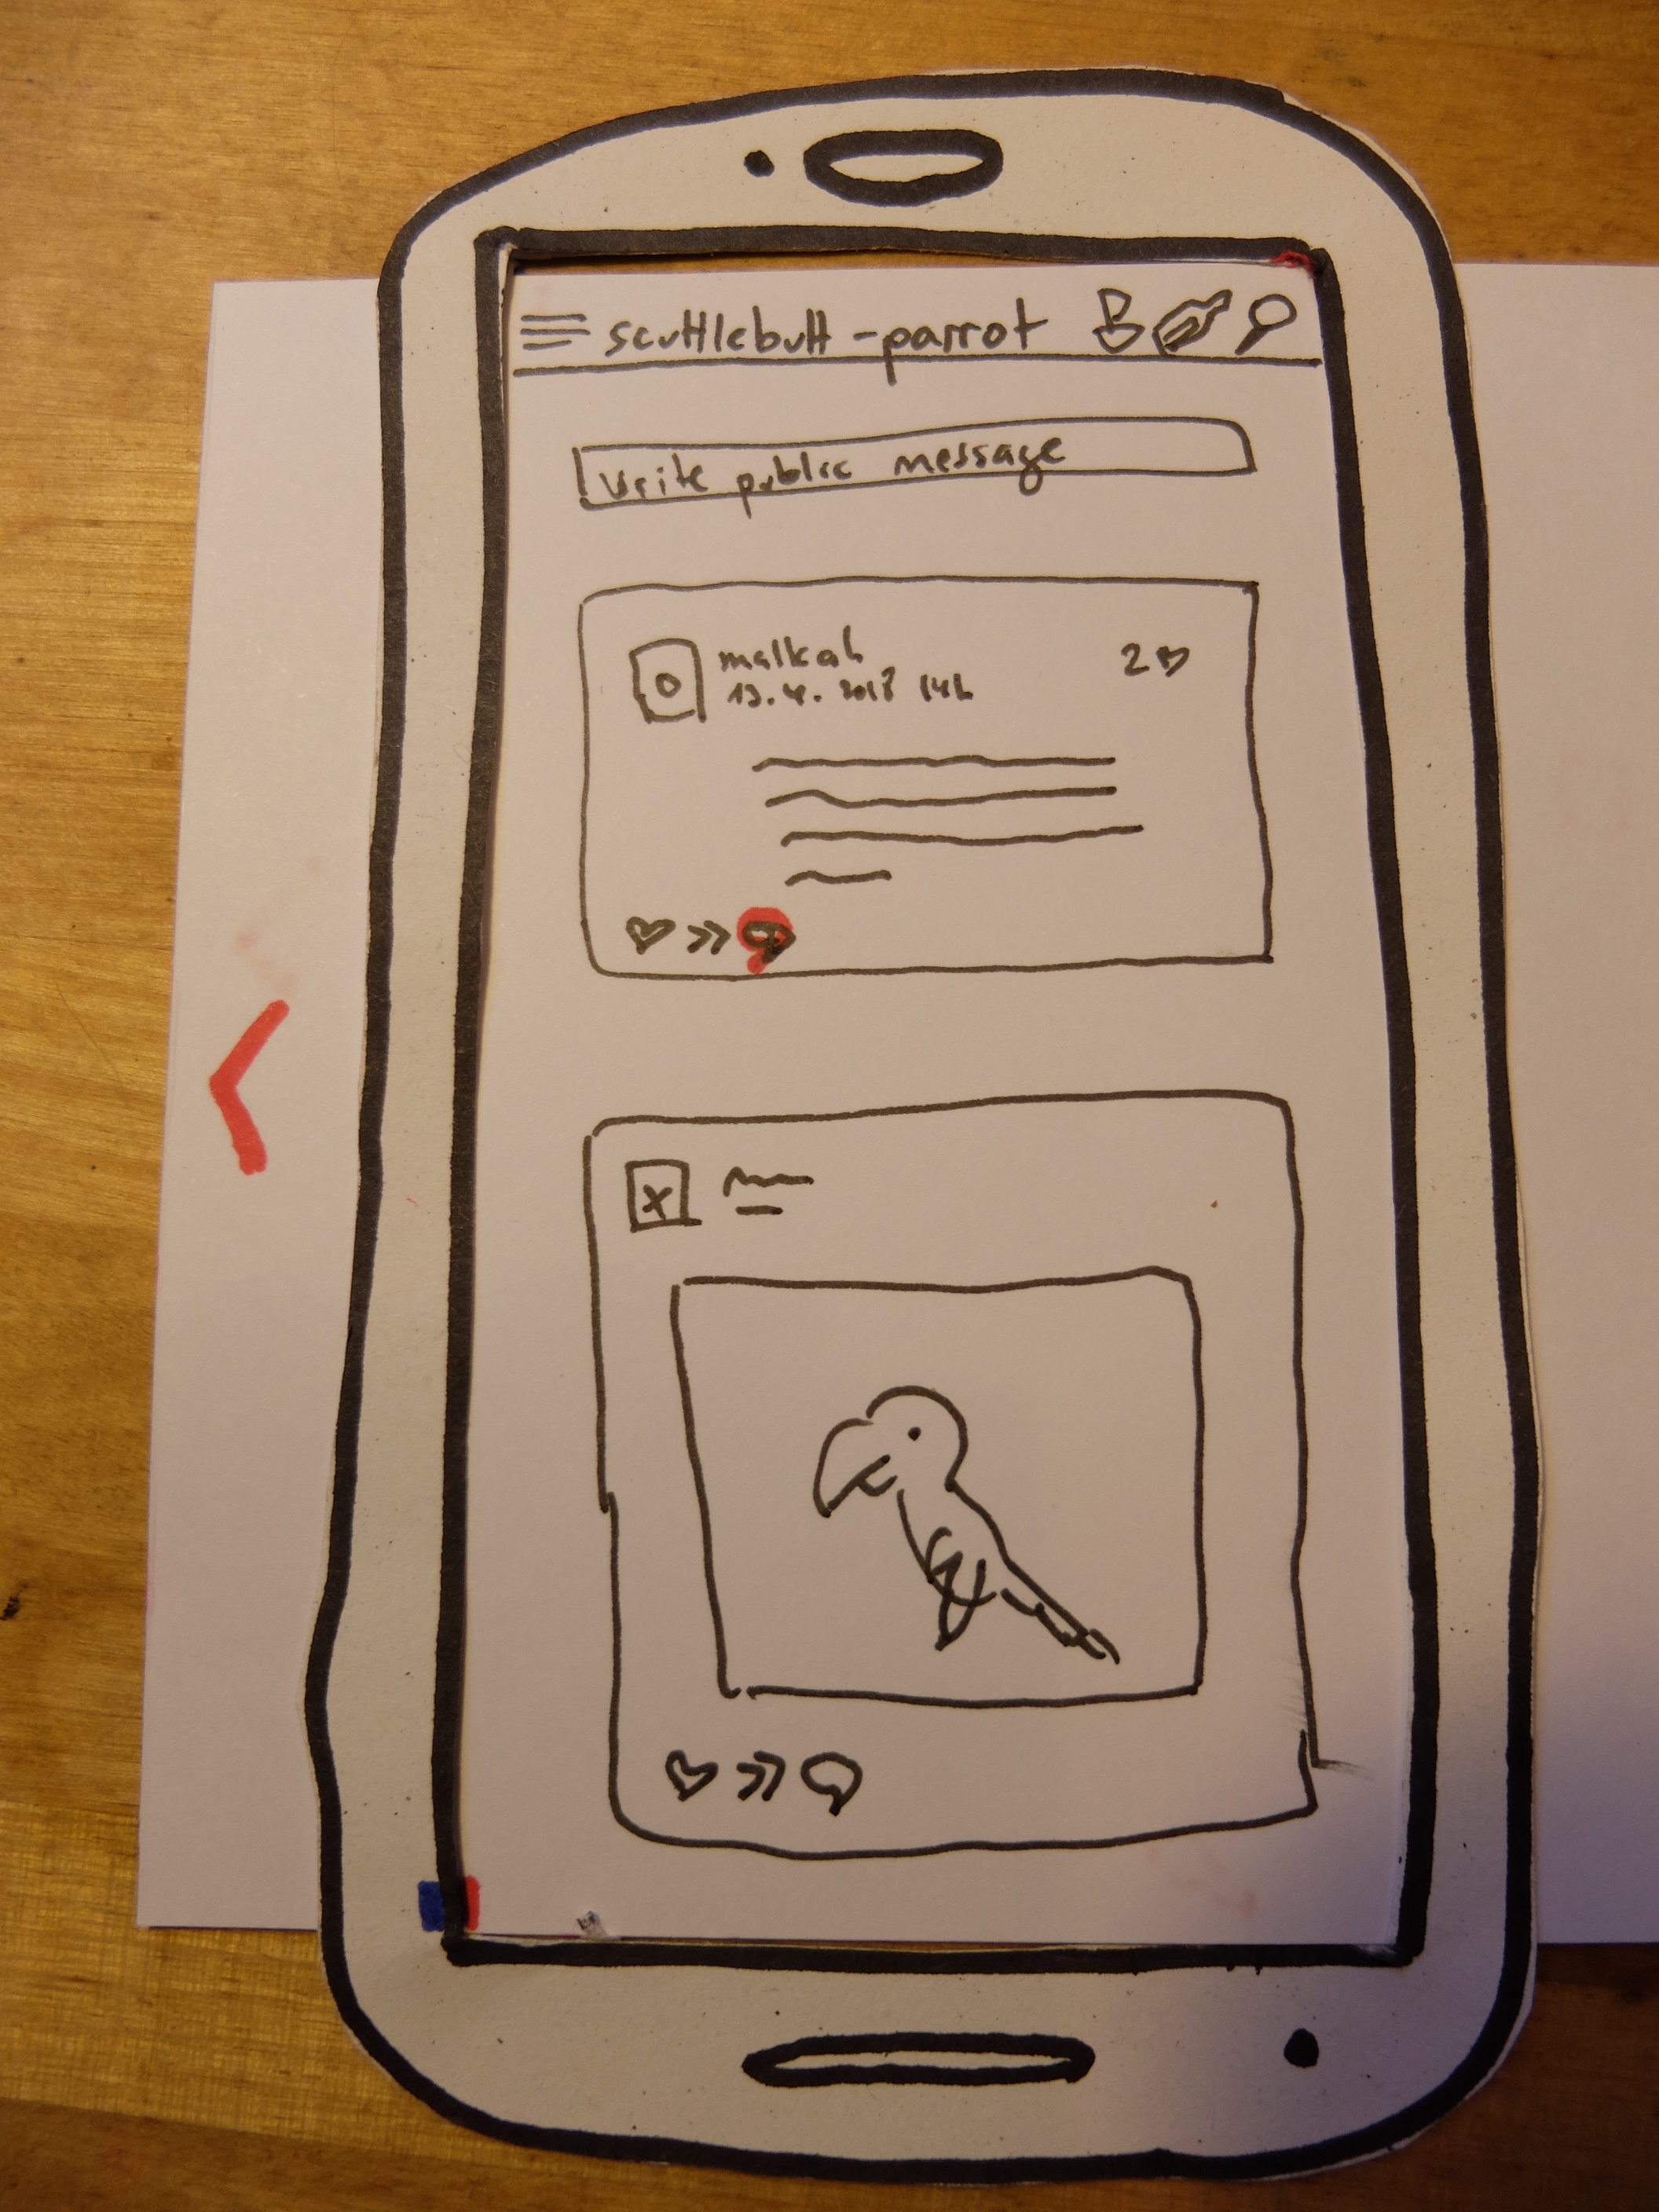 scuttlebutt-parrot
write public message
malkah
2
13.4.2018 14h